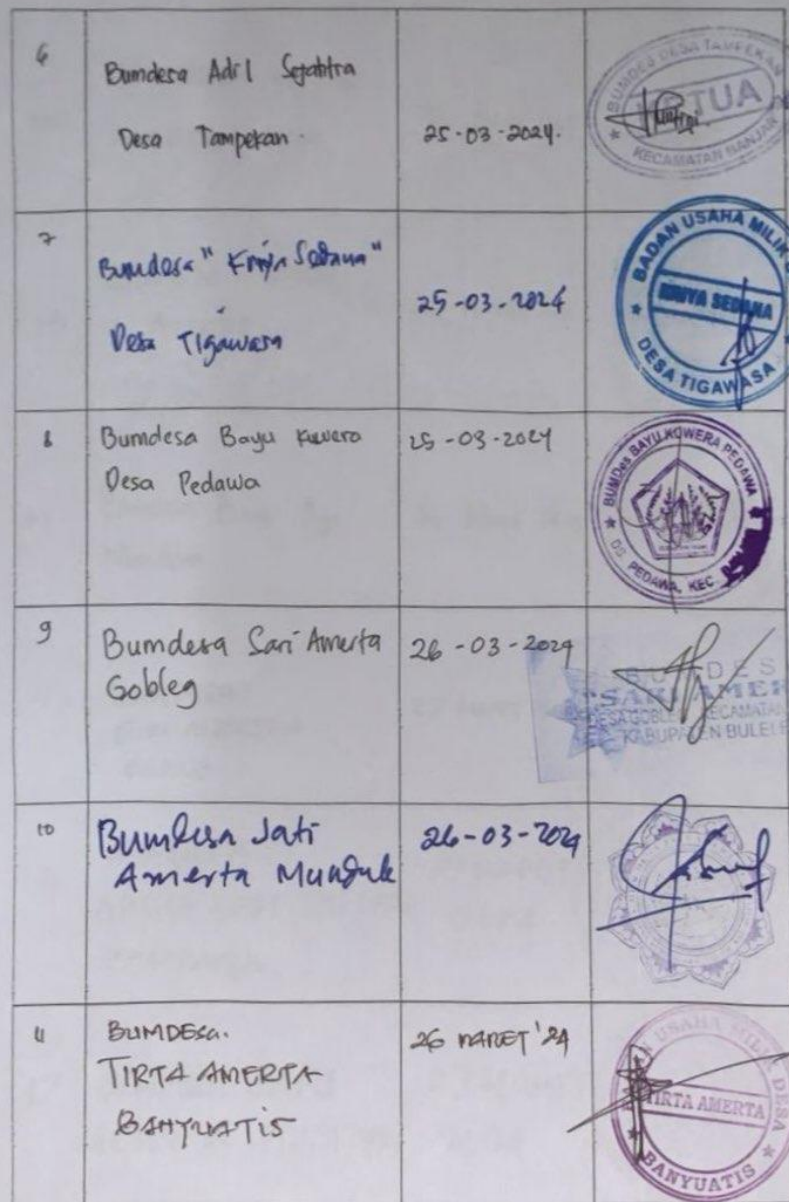 6
Bumdesa Adil Sejahtra
Desa Tampekan.
25-03-2024.
BUMDES DESA TAMPEKAN
KETUA
KECAMATAN BANJAR
7
Bumdesa "Kriya Sedana"
Desa Tigawasa
25-03-2024
BADAN USAHA MILIK
KRIYA SEDANA
DESA TIGAWASA
8
Bumdesa Bayu Kuwera
Desa Pedawa
25-03-2024
BUMDes BAYU KOWERA PEDAWA
DS. PEDAWA, KEC.
9
Bumdesa Sari Amerta
Gobleg
26-03-2024
BUMDES
SARI AMER
DESA GOBLEG KECAMATAN
KABUPATEN BULELE
10
Bumdesa Jati
Amerta Munduk
26-03-2024
11
BUMDESa.
TIRTA AMERTA
BANYUATIS
26 MARET '24
USAHA MILIK DESA
TIRTA AMERTA
BANYUATIS